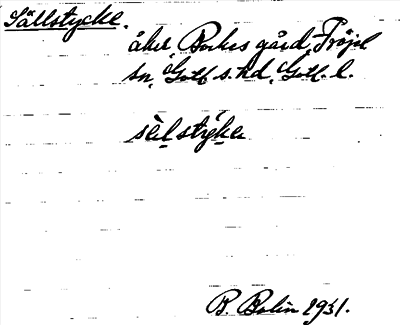 Sällstycke.
åker, Bockes gård Fröjel
sn, Gotl s. hd, Gotl. l.
sèlstýka
B. Bolin 1931.